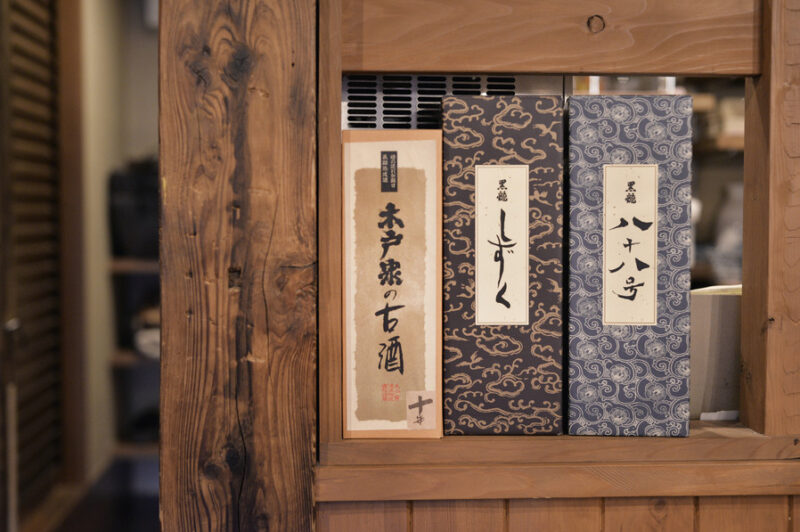 木戸泉の古酒
十年
黒龍
しずく
黒龍
八十八号